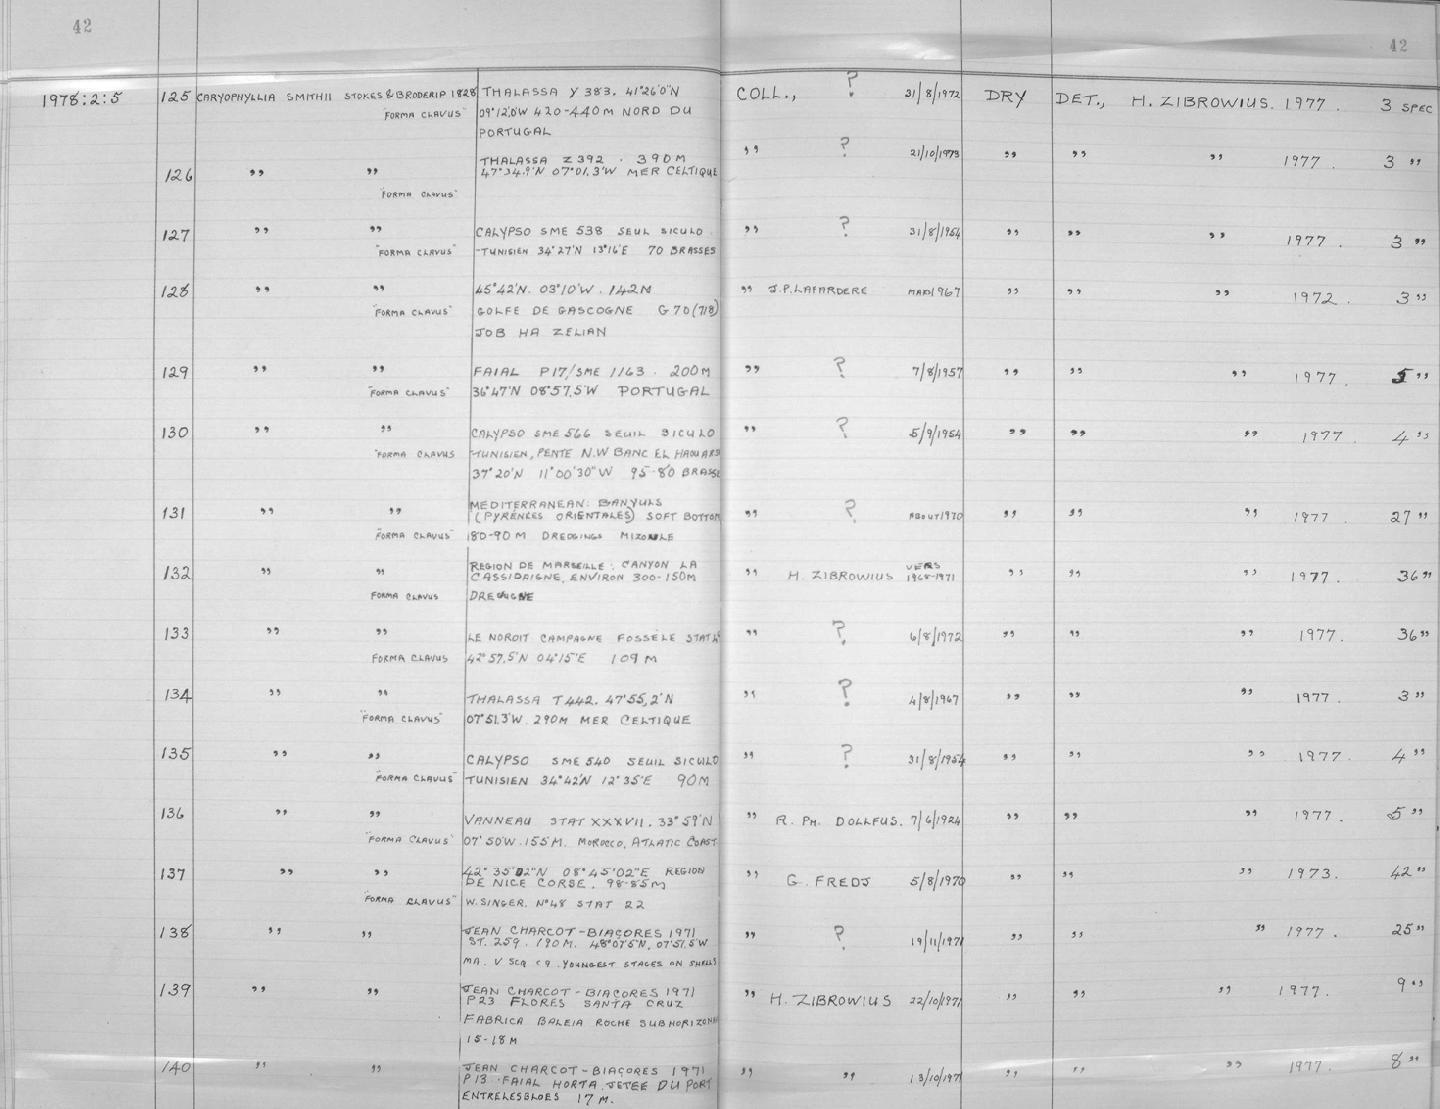 42
42
1978:2:5 125 CARYOPHYLLIA SMITHII STOKES & BRODERIP 1828 THALASSA Y 383. 41°26'0"N COLL., ? 31/8/1972 DRY DET., H. ZIBROWIUS. 1977. 3 SPEC
"FORMA CLAVUS" 09°12.0W 420-440M NORD DU
PORTUGAL
126 " " THALASSA Z392 . 390M " ? 21/10/1973 " " " 1977. 3 "
47°34.9'N 07°01.3'W MER CELTIQUE
"FORMA CLAVUS"
127 " " CALYPSO SME 538 SEUL SICULO. " ? 31/8/1954 " " " 1977. 3 "
"FORMA CLAVUS" -TUNISIEN 34°27'N 13°16'E 70 BRASSES
128 " " 45°42'N. 03°10'W. 142M " J.P. LAFARDERE 1967 " " " 1972. 3 "
"FORMA CLAVUS" GOLFE DE GASCOGNE G70(718)
JOB HA ZELIAN
129 " " FAIAL P17/SME 1163. 200M " ? 7/8/1957 " " " 1977. 5 "
"FORMA CLAVUS" 36°47'N 08°57.5'W PORTUGAL
130 " " CALYPSO SME 566 SEUIL SICULO " ? 5/9/1954 " " " 1977. 4 "
"FORMA CLAVUS TUNISIEN, PENTE N.W BANC EL HAOUARS
37°20'N 11°00'30"W 95-80 BRASSE
131 " " MEDITERRANEAN: BANYULS " ? ABOUT 1970 " " " 1977. 27 "
(PYRENEES ORIENTALES) SOFT BOTTOM
"FORMA CLAVUS" 80-90 M DREDGINGS
132 " " REGION DE MARSEILLE: CANYON LA " H. ZIBROWIUS VERS 1968-1971 " " " 1977. 36 "
CASSIDAIGNE, ENVIRON 300-150M
FORMA CLAVUS
133 " " LE NOROIT CAMPAGNE FOSSELE STAT " ? 6/8/1972 " " " 1977. 36 "
FORMA CLAVUS 42°57.5'N 04°15'E 109 M
134 " " THALASSA T442. 47°55,2'N " ? 4/8/1967 " " " 1977. 3 "
"FORMA CLAVUS" 07°51.3'W. 290M MER CELTIQUE
135 " " CALYPSO SME 540 SEUIL SICULO " ? 31/8/1954 " " " 1977. 4 "
"FORMA CLAVUS" TUNISIEN 34°42'N 12°35'E 90M
136 " " VANNEAU STAT XXXVII. 33°59'N " R. PH. DOLLFUS. 7/6/1924 " " " 1977. 5 "
"FORMA CLAVUS" 07°50'W. 155M. MOROCCO, ATLATIC COAST.
137 " " 42°35'02"N 08°45'02"E REGION " G. FREDJ 5/8/1970 " " " 1973. 42 "
DE NICE CORSE. 98-85M
"FORMA CLAVUS" W.SINGER. N°48 STAT 22
138 " " JEAN CHARCOT-BIAÇORES 1971 " ? 19/11/1971 " " " 1977. 25 "
ST. 259. 190M. 48°07.5'N, 07°51.5'W
YOUNGEST STAGES ON SHELLS
139 " " JEAN CHARCOT-BIAÇORES 1971 " H. ZIBROWIUS 22/10/1971 " " " 1977. 9 "
P23 FLORES SANTA CRUZ
FABRICA BALEIA ROCHE SUBHORIZONA
15-18M
140 " " JEAN CHARCOT-BIAÇORES 1971 " " 13/10/1971 " " " 1977. 8 "
P13. FAIAL HORTA. JETEE DU PORT
17 M.